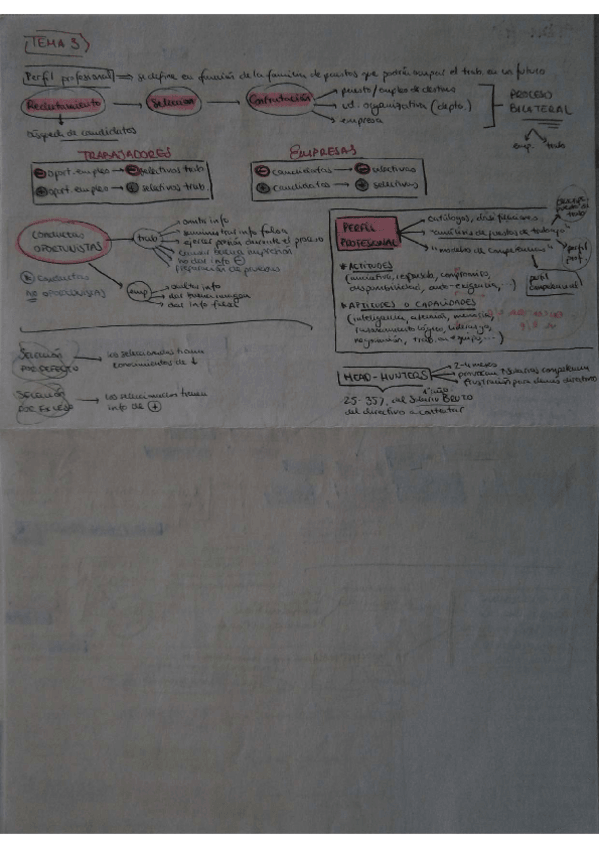 TEMA 3
Perfil profesional ⇒ se define en función de la familia de puestos que podría ocupar el trab. en un futuro
Reclutamiento → Selección → Contratación
puesto/empleo de destino
ud. organizativa (depto.)
empresa
PROCESO
BILATERAL
emp. trab
búsqueda de candidatos
TRABAJADORES
⊖ oport. empleo → ⊖ selectivos trab.
⊕ oport. empleo → ⊕ selectivos trab.
EMPRESAS
⊖ candidatos → ⊖ selectivos
⊕ candidatos → ⊕ selectivas
CONDUCTAS
OPORTUNISTAS
trab
omite info
suministrar info falsa
ejercer presión durante el proceso
causar buena impresión
no dar info ⊖
preparación de pruebas
conductas
NO OPORTUNISTAS
emp
oculta info
dar info falsa
PERFIL
PROFESIONAL
catálogos, diccionarios
"análisis de puestos de trabajo"
"modelos de competencias"
trabajo
perfil
prof.
perfil
competencial
* ACTITUDES
(iniciativa, respeto, compromiso,
disponibilidad, auto-exigencia, ...)
* APTITUDES O CAPACIDADES
(inteligencia, atención, memoria,
razonamiento lógico, liderazgo,
negociación, trab. en equipo, ...)
SELECCIÓN
POR DEFECTO → los seleccionados tienen
conocimientos de ↓
SELECCIÓN
POR EXCESO → los seleccionados tienen
info de ⊕
HEAD-HUNTERS
2-4 meses
1er año
25-35% del Salario BRUTO
del directivo a contratar